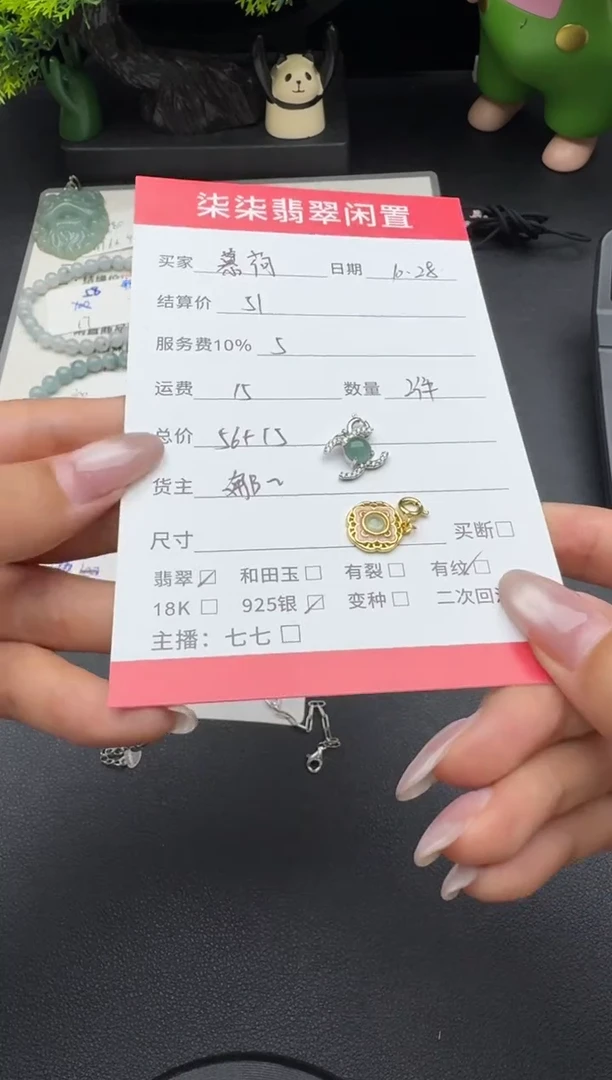 柒柒翡翠闲置
买家 慕 日期 6.28
结算价 51
服务费10% 5
运费 15 数量 2件
总价 56+15
货主 娜~
尺寸 买断☐
翡翠☑ 和田玉☐ 有裂☐ 有纹☑
18K☐ 925银☑ 变种☐ 二次回
主播：七七☐